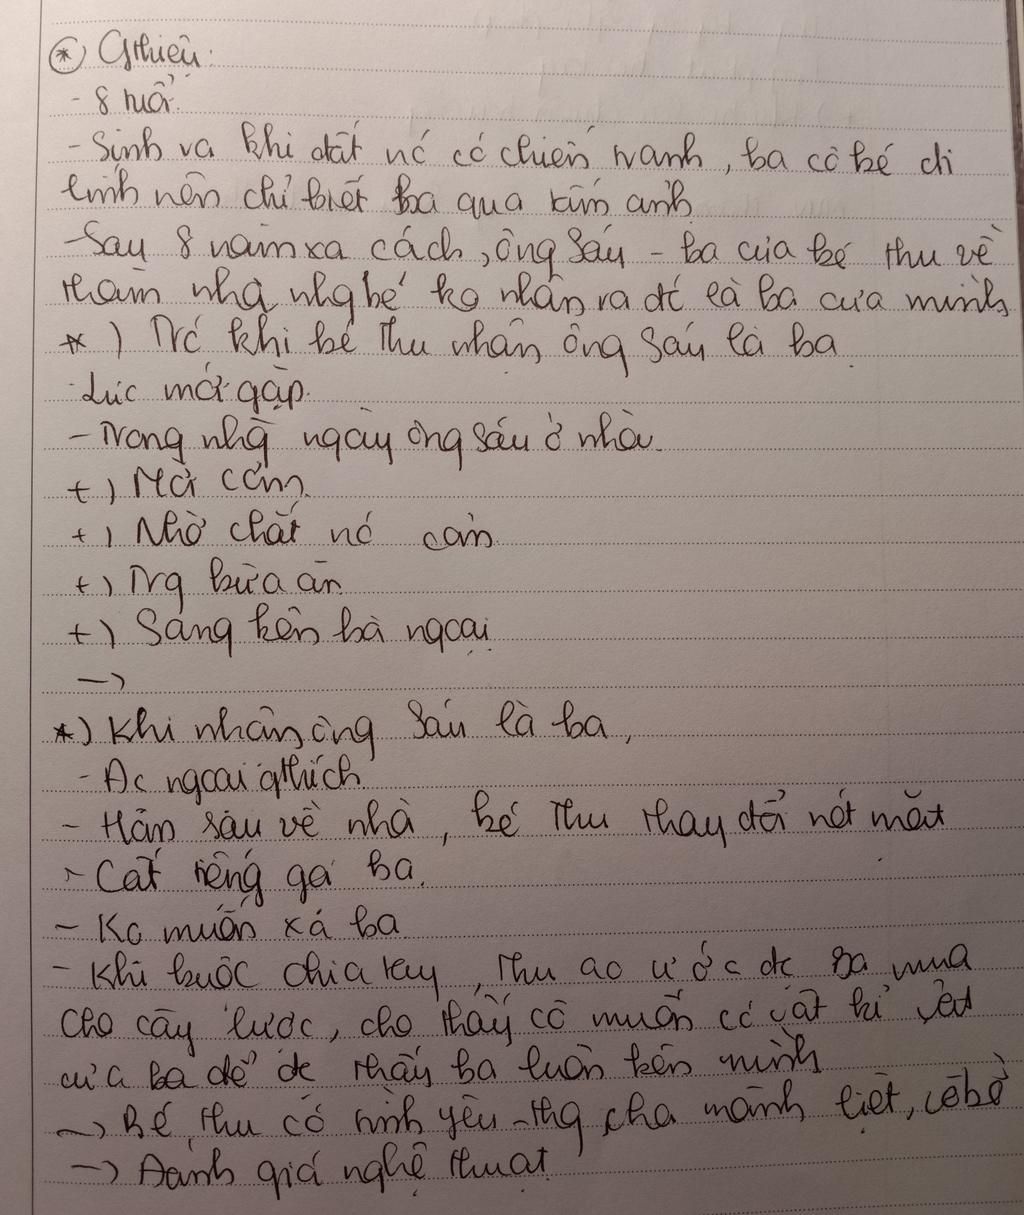 ⊛ Gthiệu:
- 8 tuổi.
- Sinh ra khi đất nc có chiến tranh, ba cô bé đi
lính nên chỉ biết ba qua tấm ảnh
- Sau 8 năm xa cách, ông Sáu - ba của bé Thu về
thăm nhà, nhg bé ko nhận ra đó là ba của mình
*) Trc khi bé Thu nhận ông Sáu là ba
- Lúc mới gặp.
- Trong nhg ngày ông Sáu ở nhà.
+) Mời cơm.
+) Nhờ chắt nc cơm.
+) Trg bữa ăn
+) Sang bên bà ngoại
→
*) Khi nhận ông Sáu là ba,
- Đc ngoại gthích
- Hôm sau về nhà, bé Thu thay đổi nét mặt
- Cất tiếng gọi ba.
- Ko muốn xa ba
- Khi buộc chia tay, Thu ao ước đc ba mua
cho cây lược, cho thấy cô muốn có vật kỉ vật
của ba để đc thấy ba luôn bên mình
→ Bé Thu có tình yêu thg cha mãnh liệt,
→ Đánh giá nghệ thuật